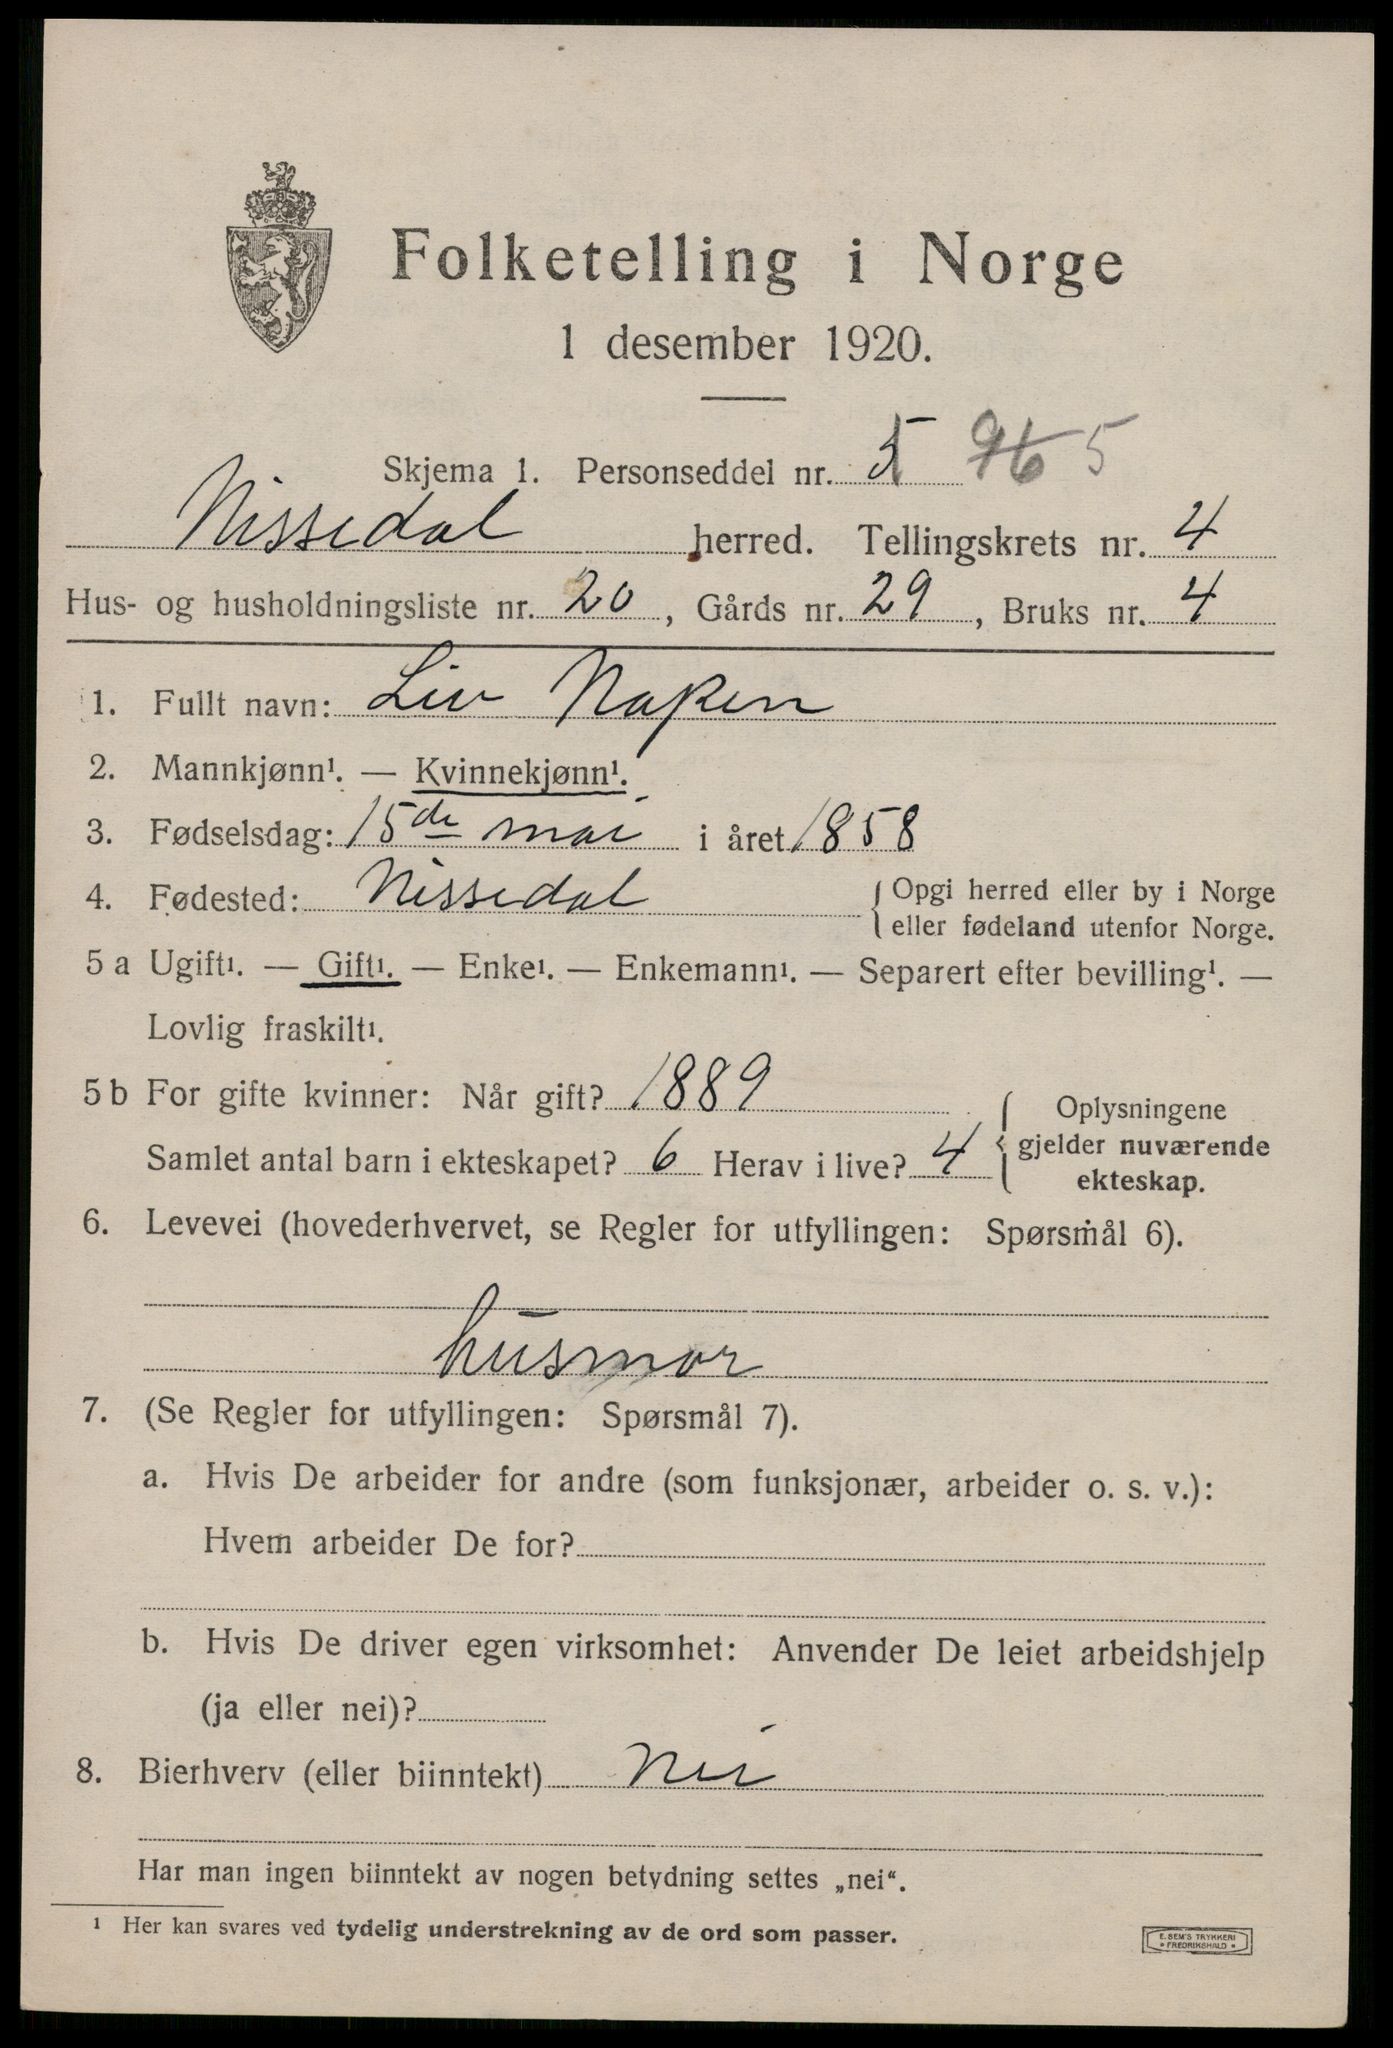 Folketelling i Norge
1 desember 1920.
Skjema 1. Personseddel nr. 5 5
Nissedal herred. Tellingskrets nr. 4
Hus- og husholdningsliste nr. 20, Gårds nr. 29, Bruks nr. 4
1. Fullt navn: Liv Napen
2. Mannkjønn¹. — Kvinnekjønn¹.
3. Fødselsdag: 15de mai i året 1858
4. Fødested: Nissedal { Opgi herred eller by i Norge
eller fødeland utenfor Norge.
5 a Ugift¹. — Gift¹. — Enke¹. — Enkemann¹. — Separert efter bevilling¹. —
Lovlig fraskilt¹.
5 b For gifte kvinner: Når gift? 1889
Samlet antal barn i ekteskapet? 6 Herav i live? 4 { Oplysningene
gjelder nuværende
ekteskap.
6. Levevei (hovederhvervet, se Regler for utfyllingen: Spørsmål 6).
husmor
7. (Se Regler for utfyllingen: Spørsmål 7).
a. Hvis De arbeider for andre (som funksjonær, arbeider o. s. v.):
Hvem arbeider De for?
b. Hvis De driver egen virksomhet: Anvender De leiet arbeidshjelp
(ja eller nei)?
8. Bierhverv (eller biinntekt) Nei
Har man ingen biinntekt av nogen betydning settes „nei“.
¹ Her kan svares ved tydelig understrekning av de ord som passer.
E. SEM'S TRYKKERI
* FREDRIKSHALD *